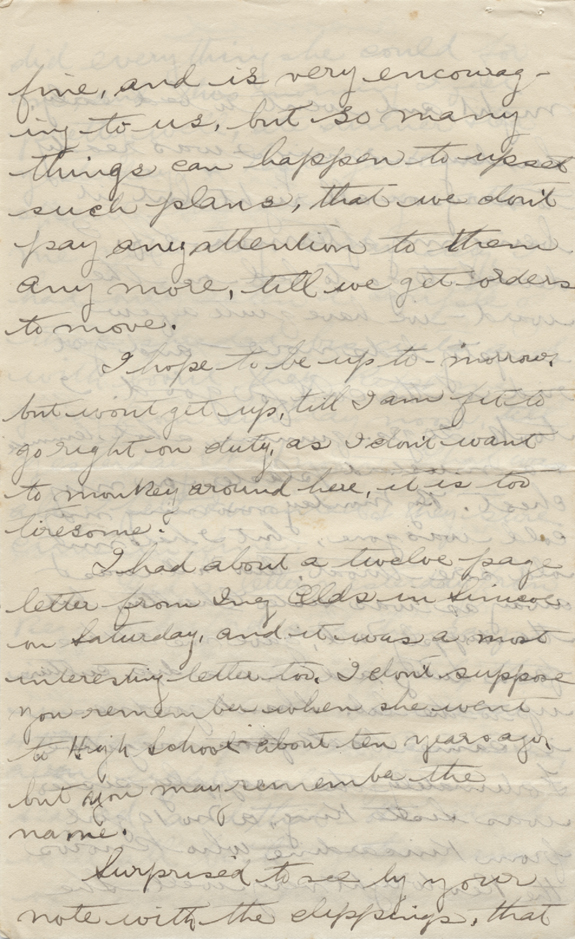 fine, and is very encourag-
ing to us, but so many
things can happen to upset
such plans, that we don't
pay any attention to them
any more, till we get orders
to move.
I hope to be up to-morrow,
but wont get up, till I am fit to
go right on duty, as I don't want
to monkey around here, it is too
tiresome.
I had about a twelve page
letter from Olds in Lincoln
on Saturday, and it was a most
interesting letter too. I don't suppose
you remember when she went
to High School about ten years ago,
but you may remember the
name.
Surprised to see by your
note with the clippings, that